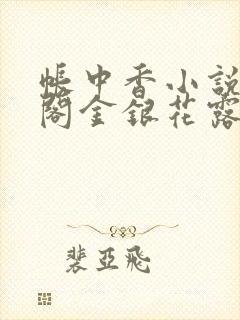 帳中香小説
閣金銀花露
裴亞飛